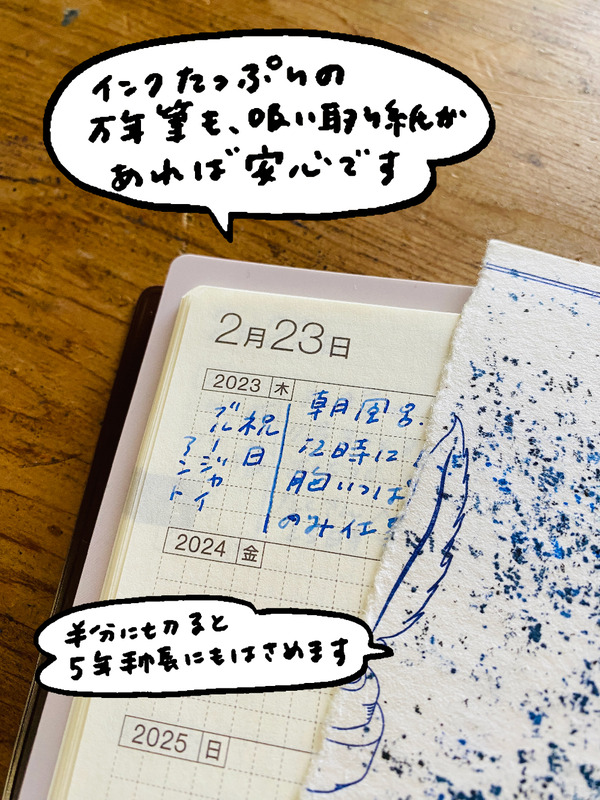 インクたっぷりの
万年筆も、吸い取り紙が
あれば安心です
2月23日
2023 木
祝日
ブルージャイアント
朝風呂
12時に
胸いっぱ
のみ仕
2024 金
半分にも切ると
5年手帳にもはさめます
2025 日